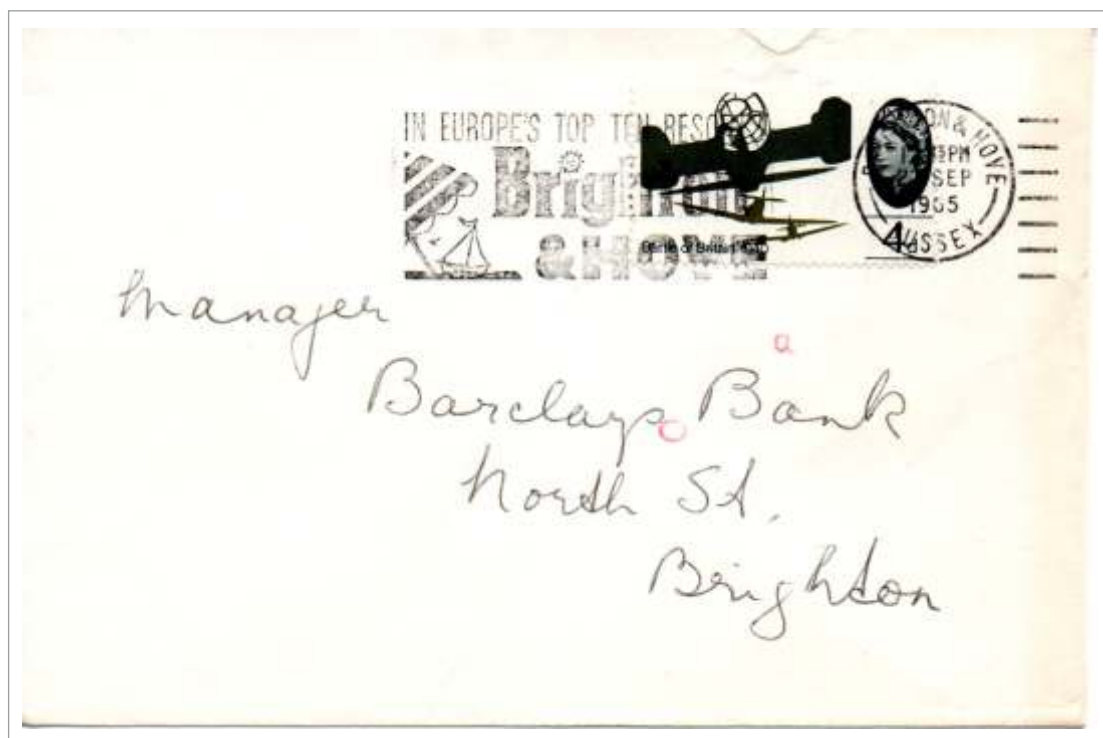 IN EUROPE'S TOP TEN RESO
Brighton
& HOVE
Battle of Britain 1940
4d
ON & HOVE
PM
SEP
1965
SUSSEX
Manager
a
Barclays Bank
North St.
Brighton